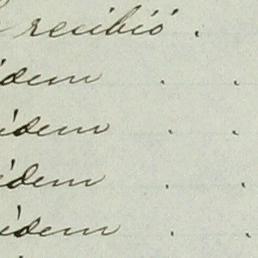 recibió .
idem . .
idem . .
idem . .
idem . .